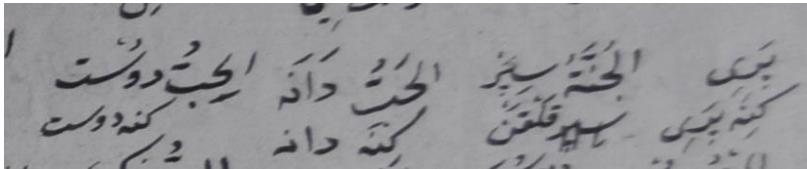 يَرى الجُنَّةُ سِپَر الحَبُّ دَانَه الحِبُّ دوُست
كِنَه يَرى سپر قَلْقَنْ كِنَه دانه كنه دوست